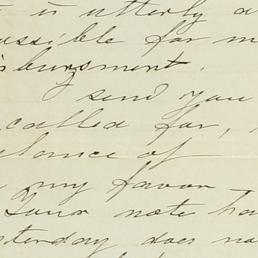 is utterly
ussible for m
bursment.
I send you
called for,
lance of
my favor
Your note ha
sterday does no